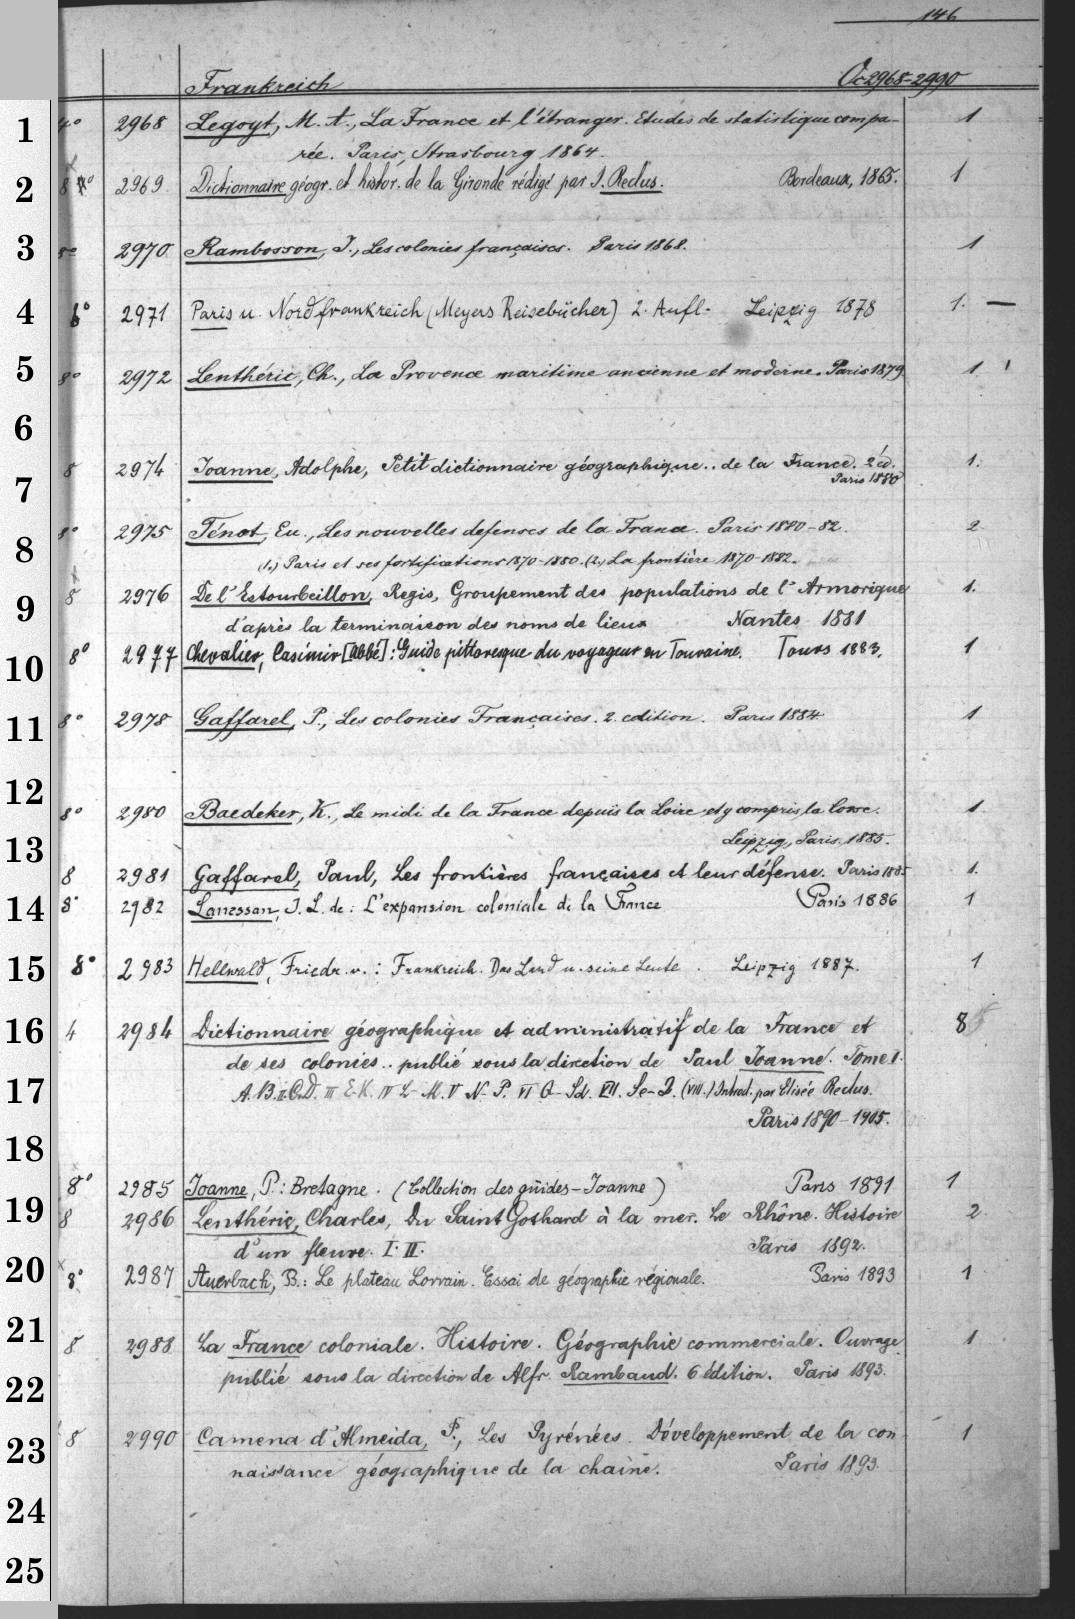 146
Frankreich Oc2968-2990
1 4° 2968 Legoyt, M. A., La France et l'étranger. Etudes de statistique compa- 1
rée. Paris, Strasbourg 1864.
2 8° 2969. Dictionnaire géogr. et histor. de la Gironde rédigé par J. Reclus. Bordeaux, 1865. 1
3 8° 2970. Rambosson, J., Les colonies françaises. Paris 1868. 1
4 8° 2971 Paris u. Nordfrankreich (Meyers Reisebücher) 2. Aufl. Leipzig 1878 1. —
5 8° 2972 Lenthéric, Ch., La Provence maritime ancienne et moderne. Paris 1879 1
6
8 2974 Joanne, Adolphe, Petit dictionnaire géographique.. de la France. 2 éd. 1.
7 Paris 1880
8° 2975 Ténot, Eu., Les nouvelles défenses de la France. Paris 1880-82. 2
8 (1.) Paris et ses fortifications 1870-1880. (2.) La frontière 1870-1882.
9 8 2976 De l'Estourbeillon, Regis, Groupement des populations de l'Armorique 1.
d'après la terminaison des noms de lieux Nantes 1881
10 8° 2977 Chevalier, Casimir [Abbé]: Guide pittoresque du voyageur en Touraine. Tours 1883. 1
11 8° 2978 Gaffarel, P., Les colonies Françaises. 2. edition. Paris 1884 1
12 8° 2980 Baedeker, K., Le midi de la France depuis la Loire et y compris la Corse. 1
13 Leipzig, Paris. 1885.
8 2981 Gaffarel, Paul, Les frontières françaises et leur défense. Paris 1885 1.
14 8° 2982 Lanessan, J. L. de: L'expansion coloniale de la France Paris 1886 1
15 8° 2983 Hellwald, Friedr. v.: Frankreich. Das Land u. seine Leute. Leipzig 1887. 1
16 4 2984 Dictionnaire géographique et administratif de la France et 8
de ses colonies.. publié sous la direction de Paul Joanne. Tome I.
17 A. B. II. C. D. III E-K. IV L-M. V N-P. VI Q-Sd. VII. Se-Z. (VIII.) Introd. par Elisée Reclus.
Paris 1890-1905.
18
8° 2985 Joanne, P.: Bretagne. (Collection des guides-Joanne) Paris 1891 1
19 8 2986 Lenthéric, Charles, Du Saint Gothard à la mer. Le Rhône. Histoire 2
d'un fleuve. I. II. Paris 1892.
20 8° 2987 Auerbach, B.: Le plateau Lorrain. Essai de géographie régionale. Paris 1893 1
21 8 2988 La France coloniale. Histoire. Géographie commerciale. Ouvrage 1
22 publié sous la direction de Alfr. Rambaud. 6 édition. Paris 1893.
23 8 2990 Camena d'Almeida, P., Les Pyrénées. Développement de la con 1
naissance géographique de la chaine. Paris 1893.
24
25